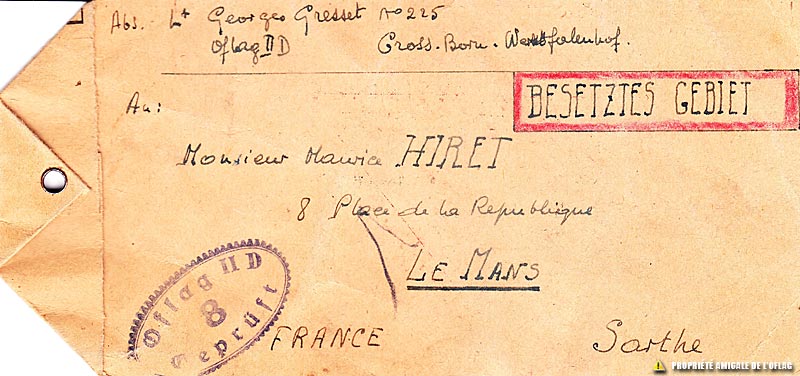 Abs. Lt Georges Gresset No 225
Oflag II D Gross-Born-Westfalenhof.
BESETZTES GEBIET
An:
Monsieur Maurice HIRET
8 Place de la Republique
LE MANS
FRANCE Sarthe
Oflag II D
8
Geprüft
PROPRIÉTÉ AMICALE DE L'OFLAG